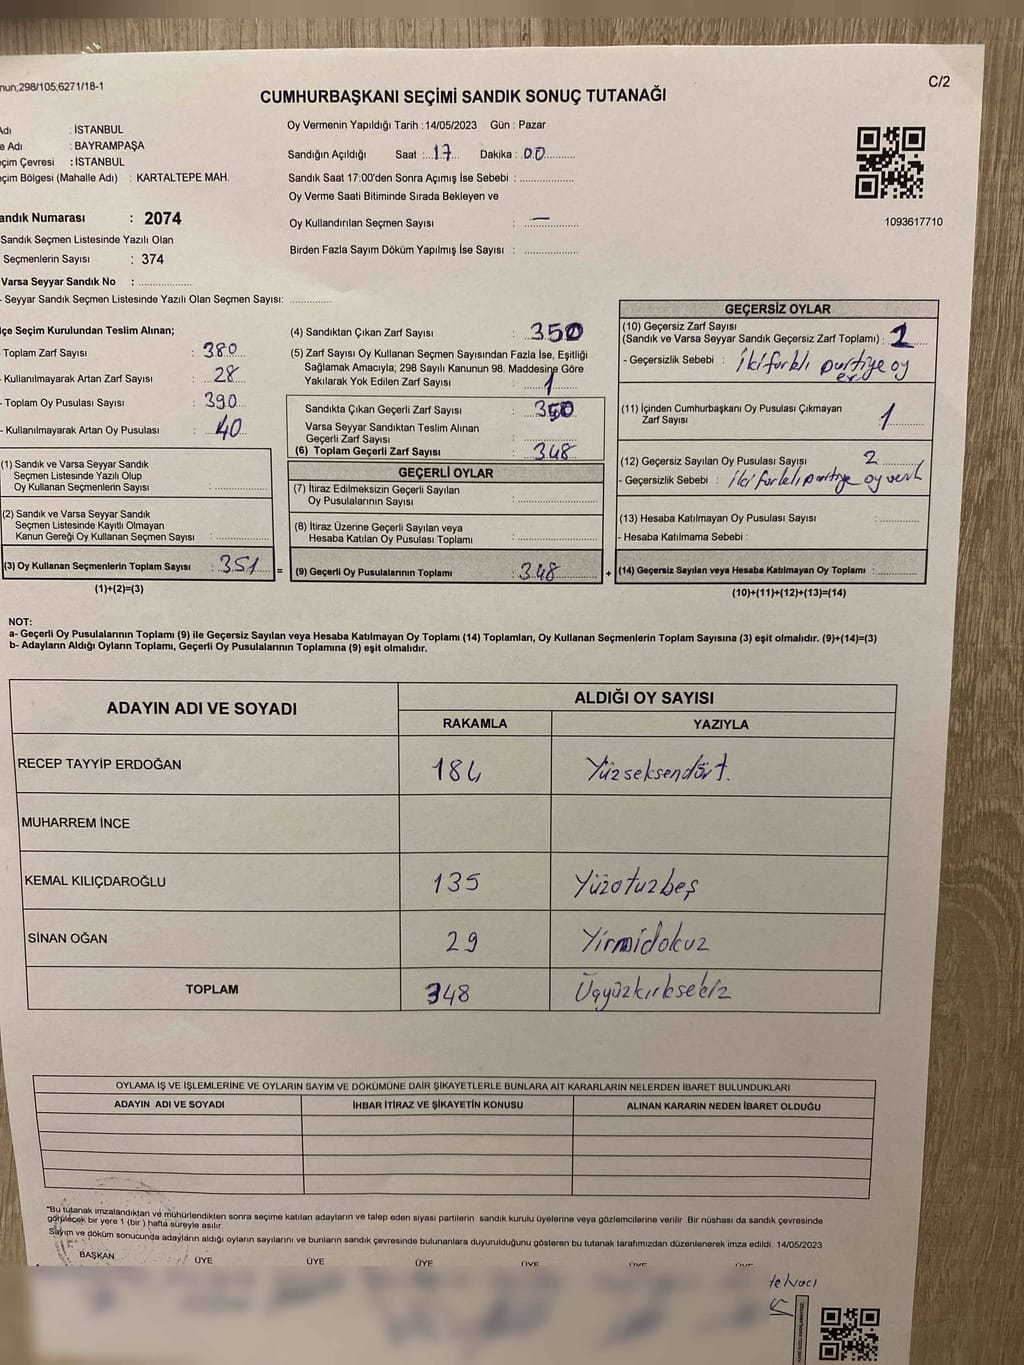 nun;298/105;6271/18-1
C/2
CUMHURBAŞKANI SEÇİMİ SANDIK SONUÇ TUTANAĞI
Adı : İSTANBUL
e Adı : BAYRAMPAŞA
eçim Çevresi : İSTANBUL
eçim Bölgesi (Mahalle Adı) : KARTALTEPE MAH.
andık Numarası : 2074
Sandık Seçmen Listesinde Yazılı Olan
Seçmenlerin Sayısı : 374
Varsa Seyyar Sandık No : ..................
- Seyyar Sandık Seçmen Listesinde Yazılı Olan Seçmen Sayısı: ..............
Oy Vermenin Yapıldığı Tarih : 14/05/2023 Gün : Pazar
Sandığın Açıldığı Saat : 17 Dakika : 00
Sandık Saat 17:00'den Sonra Açımış İse Sebebi : ..................
Oy Verme Saati Bitiminde Sırada Bekleyen ve
Oy Kullandırılan Seçmen Sayısı : —
Birden Fazla Sayım Döküm Yapılmış İse Sayısı : ..................
1093617710
lçe Seçim Kurulundan Teslim Alınan;
Toplam Zarf Sayısı : 380
- Kullanılmayarak Artan Zarf Sayısı : 28
- Toplam Oy Pusulası Sayısı : 390
- Kullanılmayarak Artan Oy Pusulası : 40
(1) Sandık ve Varsa Seyyar Sandık
Seçmen Listesinde Yazılı Olup
Oy Kullanan Seçmenlerin Sayısı : ..................
(2) Sandık ve Varsa Seyyar Sandık
Seçmen Listesinde Kayıtlı Olmayan
Kanun Gereği Oy Kullanan Seçmen Sayısı : ..................
(3) Oy Kullanan Seçmenlerin Toplam Sayısı : 351 =
(1)+(2)=(3)
(4) Sandıktan Çıkan Zarf Sayısı : 350
(5) Zarf Sayısı Oy Kullanan Seçmen Sayısından Fazla İse, Eşitliği
Sağlamak Amacıyla; 298 Sayılı Kanunun 98. Maddesine Göre
Yakılarak Yok Edilen Zarf Sayısı : 1
Sandıkta Çıkan Geçerli Zarf Sayısı : 350
Varsa Seyyar Sandıktan Teslim Alınan
Geçerli Zarf Sayısı : ..................
(6) Toplam Geçerli Zarf Sayısı : 348
GEÇERLİ OYLAR
(7) İtiraz Edilmeksizin Geçerli Sayılan
Oy Pusulalarının Sayısı : ..................
(8) İtiraz Üzerine Geçerli Sayılan veya
Hesaba Katılan Oy Pusulası Toplamı : ..................
(9) Geçerli Oy Pusulalarının Toplamı : 348 +
GEÇERSİZ OYLAR
(10) Geçersiz Zarf Sayısı
(Sandık ve Varsa Seyyar Sandık Geçersiz Zarf Toplamı) :
- Geçersizlik Sebebi : İki farklı partiye oy
(11) İçinden Cumhurbaşkanı Oy Pusulası Çıkmayan
Zarf Sayısı : 1
(12) Geçersiz Sayılan Oy Pusulası Sayısı : 2
- Geçersizlik Sebebi : İki farklı partiye oy
(13) Hesaba Katılmayan Oy Pusulası Sayısı : ..................
- Hesaba Katılmama Sebebi :
(14) Geçersiz Sayılan veya Hesaba Katılmayan Oy Toplamı : ..................
(10)+(11)+(12)+(13)=(14)
NOT:
a- Geçerli Oy Pusulalarının Toplamı (9) ile Geçersiz Sayılan veya Hesaba Katılmayan Oy Toplamı (14) Toplamları, Oy Kullanan Seçmenlerin Toplam Sayısına (3) eşit olmalıdır. (9)+(14)=(3)
b- Adayların Aldığı Oyların Toplamı, Geçerli Oy Pusulalarının Toplamına (9) eşit olmalıdır.
ADAYIN ADI VE SOYADI
ALDIĞI OY SAYISI
RAKAMLA YAZIYLA
RECEP TAYYİP ERDOĞAN 184 Yüzseksendört.
MUHARREM İNCE
KEMAL KILIÇDAROĞLU 135 Yüzotuzbeş
SİNAN OĞAN 29 Yirmidokuz
TOPLAM 348 Üçyüzkırksekiz
OYLAMA İŞ VE İŞLEMLERİNE VE OYLARIN SAYIM VE DÖKÜMÜNE DAİR ŞİKAYETLERLE BUNLARA AİT KARARLARIN NELERDEN İBARET BULUNDUKLARI
ADAYIN ADI VE SOYADI İHBAR İTİRAZ VE ŞİKAYETİN KONUSU ALINAN KARARIN NEDEN İBARET OLDUĞU
"Bu tutanak imzalandıktan ve mühürlendikten sonra seçime katılan adayların ve talep eden siyasi partilerin sandık kurulu üyelerine veya gözlemcilerine verilir Bir nüshası da sandık çevresinde
görülecek bir yere 1 (bir ) hafta süreyle asılır.
Sayım ve döküm sonucunda adayların aldığı oyların sayılarını ve bunların sandık çevresinde bulunanlara duyurulduğunu gösteren bu tutanak tarafımızdan düzenlenerek imza edildi. 14/05/2023
BAŞKAN ÜYE ÜYE ÜYE ÜYE ÜYE ÜYE